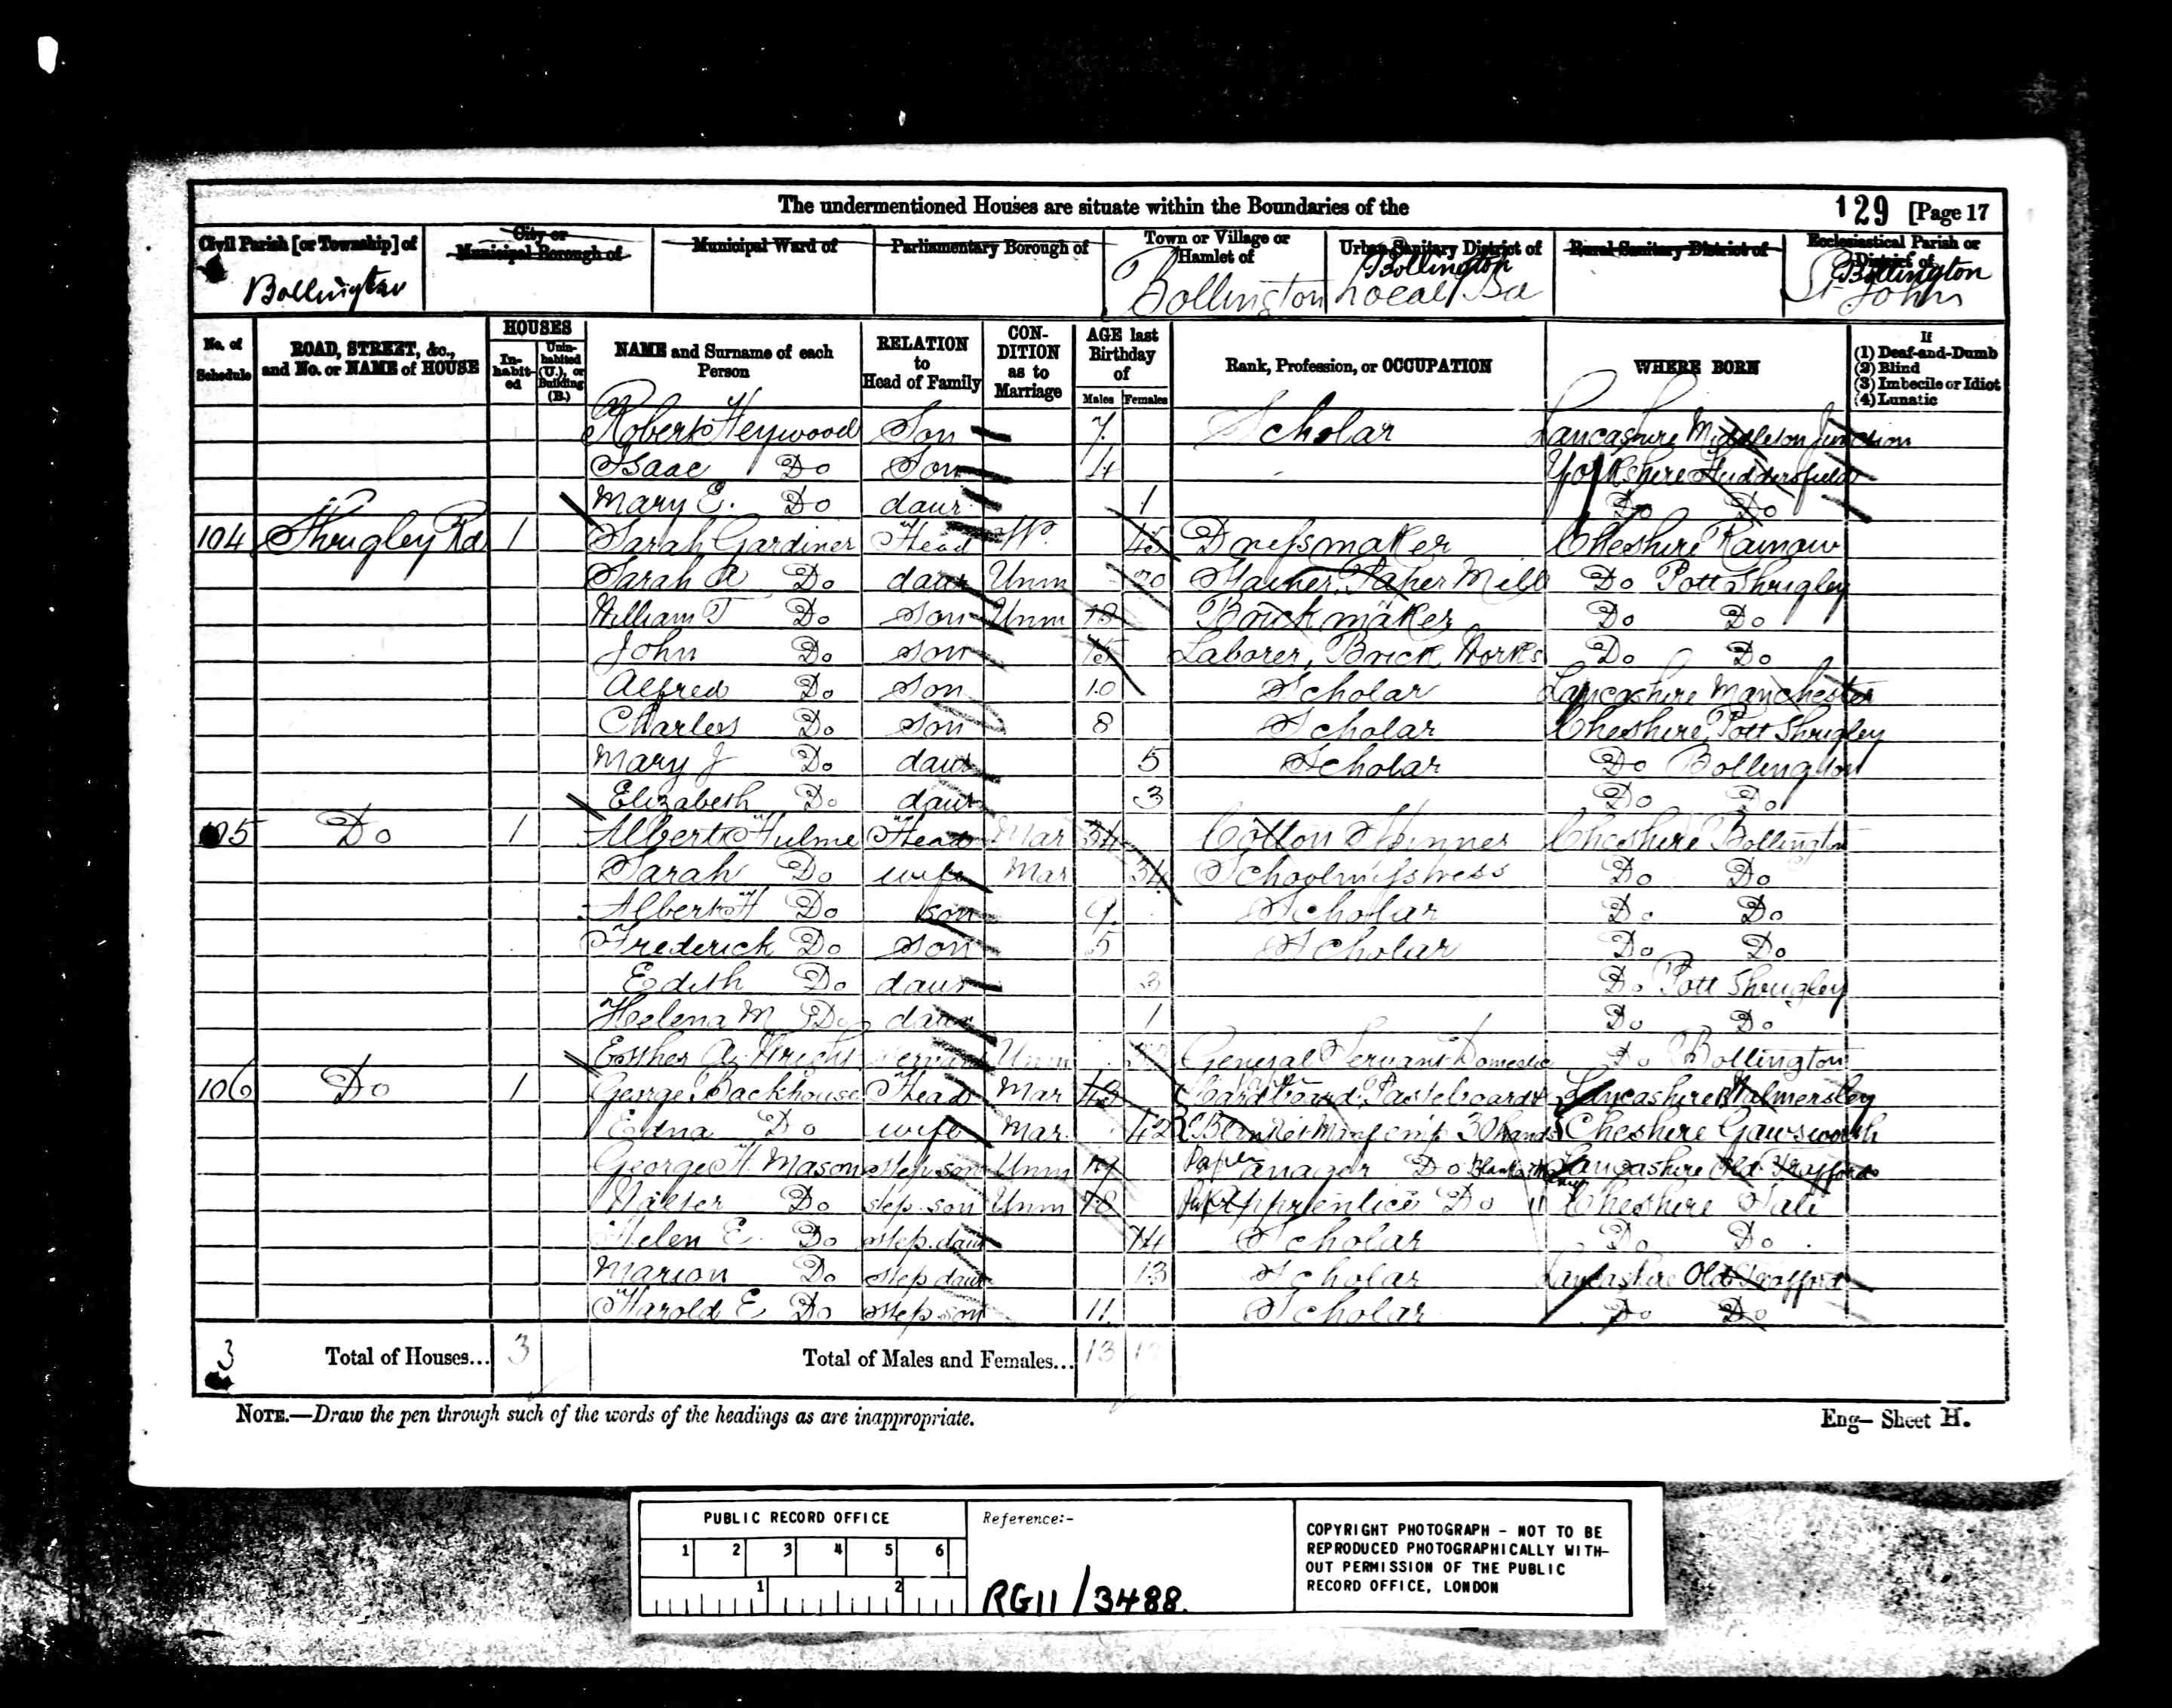 The undermentioned Houses are situate within the Boundaries of the 129 [Page 17
Civil Parish [or Township] of City or Municipal Borough of Municipal Ward of Parliamentary Borough of Town or Village or Hamlet of Urban Sanitary District of Rural Sanitary District of Ecclesiastical Parish or District of
Bollington Bollington Bollington Local Bd Bollington St John
No. of Schedule ROAD, STREET, &c., and No. or NAME of HOUSE HOUSES Inhabited Uninhabited (U.), or Building (B.) NAME and Surname of each Person RELATION to Head of Family CONDITION as to Marriage AGE last Birthday of Males Females Rank, Profession, or OCCUPATION WHERE BORN If (1) Deaf-and-Dumb (2) Blind (3) Imbecile or Idiot (4) Lunatic
Robert Heywood Son 7 Scholar Lancashire Middleton Junction
Isaac Do Son 4 Yorkshire Huddersfield
Mary E. Do daur 1 Do Do
104 Shrugley Rd 1 Sarah Gardiner Head W. 45 Dressmaker Cheshire Rainow
Sarah A Do daur Unm 20 Paper Mill Do Pott Shrugley
William T Do son Unm 18 Brickmaker Do Do
John Do son 15 Laborer, Brick Works Do Do
Alfred Do son 10 Scholar Lancashire Manchester
Charles Do son 8 Scholar Cheshire Pott Shrugley
Mary J Do daur 5 Scholar Do Bollington
Elizabeth Do daur 3 Do Do
105 Do 1 Albert Hulme Head Mar 34 Cotton Cheshire Bollington
Sarah Do wife Mar 34 Schoolmistress Do Do
Albert H Do son 9 Scholar Do Do
Frederick Do son 5 Scholar Do Do
Edith Do daur 3 Do Pott Shrugley
Helena M Do daur 1 Do Do
Esther A. Wright Servant Unm General Servant Domestic Do Bollington
106 Do 1 George Backhouse Head Mar 43 Cardboard, Pasteboard & Lancashire Walmersley
Edna Do wife Mar 42 Manf emp 30 hands Cheshire Gawsworth
George H. Mason step son Unm 19 Manager Do Lancashire Old Trafford
Walter Do step son Unm 18 Apprentice Do Cheshire Sale
Helen E. Do step daur 14 Scholar Do Do
Marion Do step daur 13 Scholar Lancashire Old Trafford
Harold E Do step son 11 Scholar Do Do
3 Total of Houses... 3 Total of Males and Females... 13
NOTE.—Draw the pen through such of the words of the headings as are inappropriate. Eng— Sheet H.
PUBLIC RECORD OFFICE
1 2 3 4 5 6
1 2
Reference:-
RG11/3488.
COPYRIGHT PHOTOGRAPH - NOT TO BE
REPRODUCED PHOTOGRAPHICALLY WITH-
OUT PERMISSION OF THE PUBLIC
RECORD OFFICE, LONDON